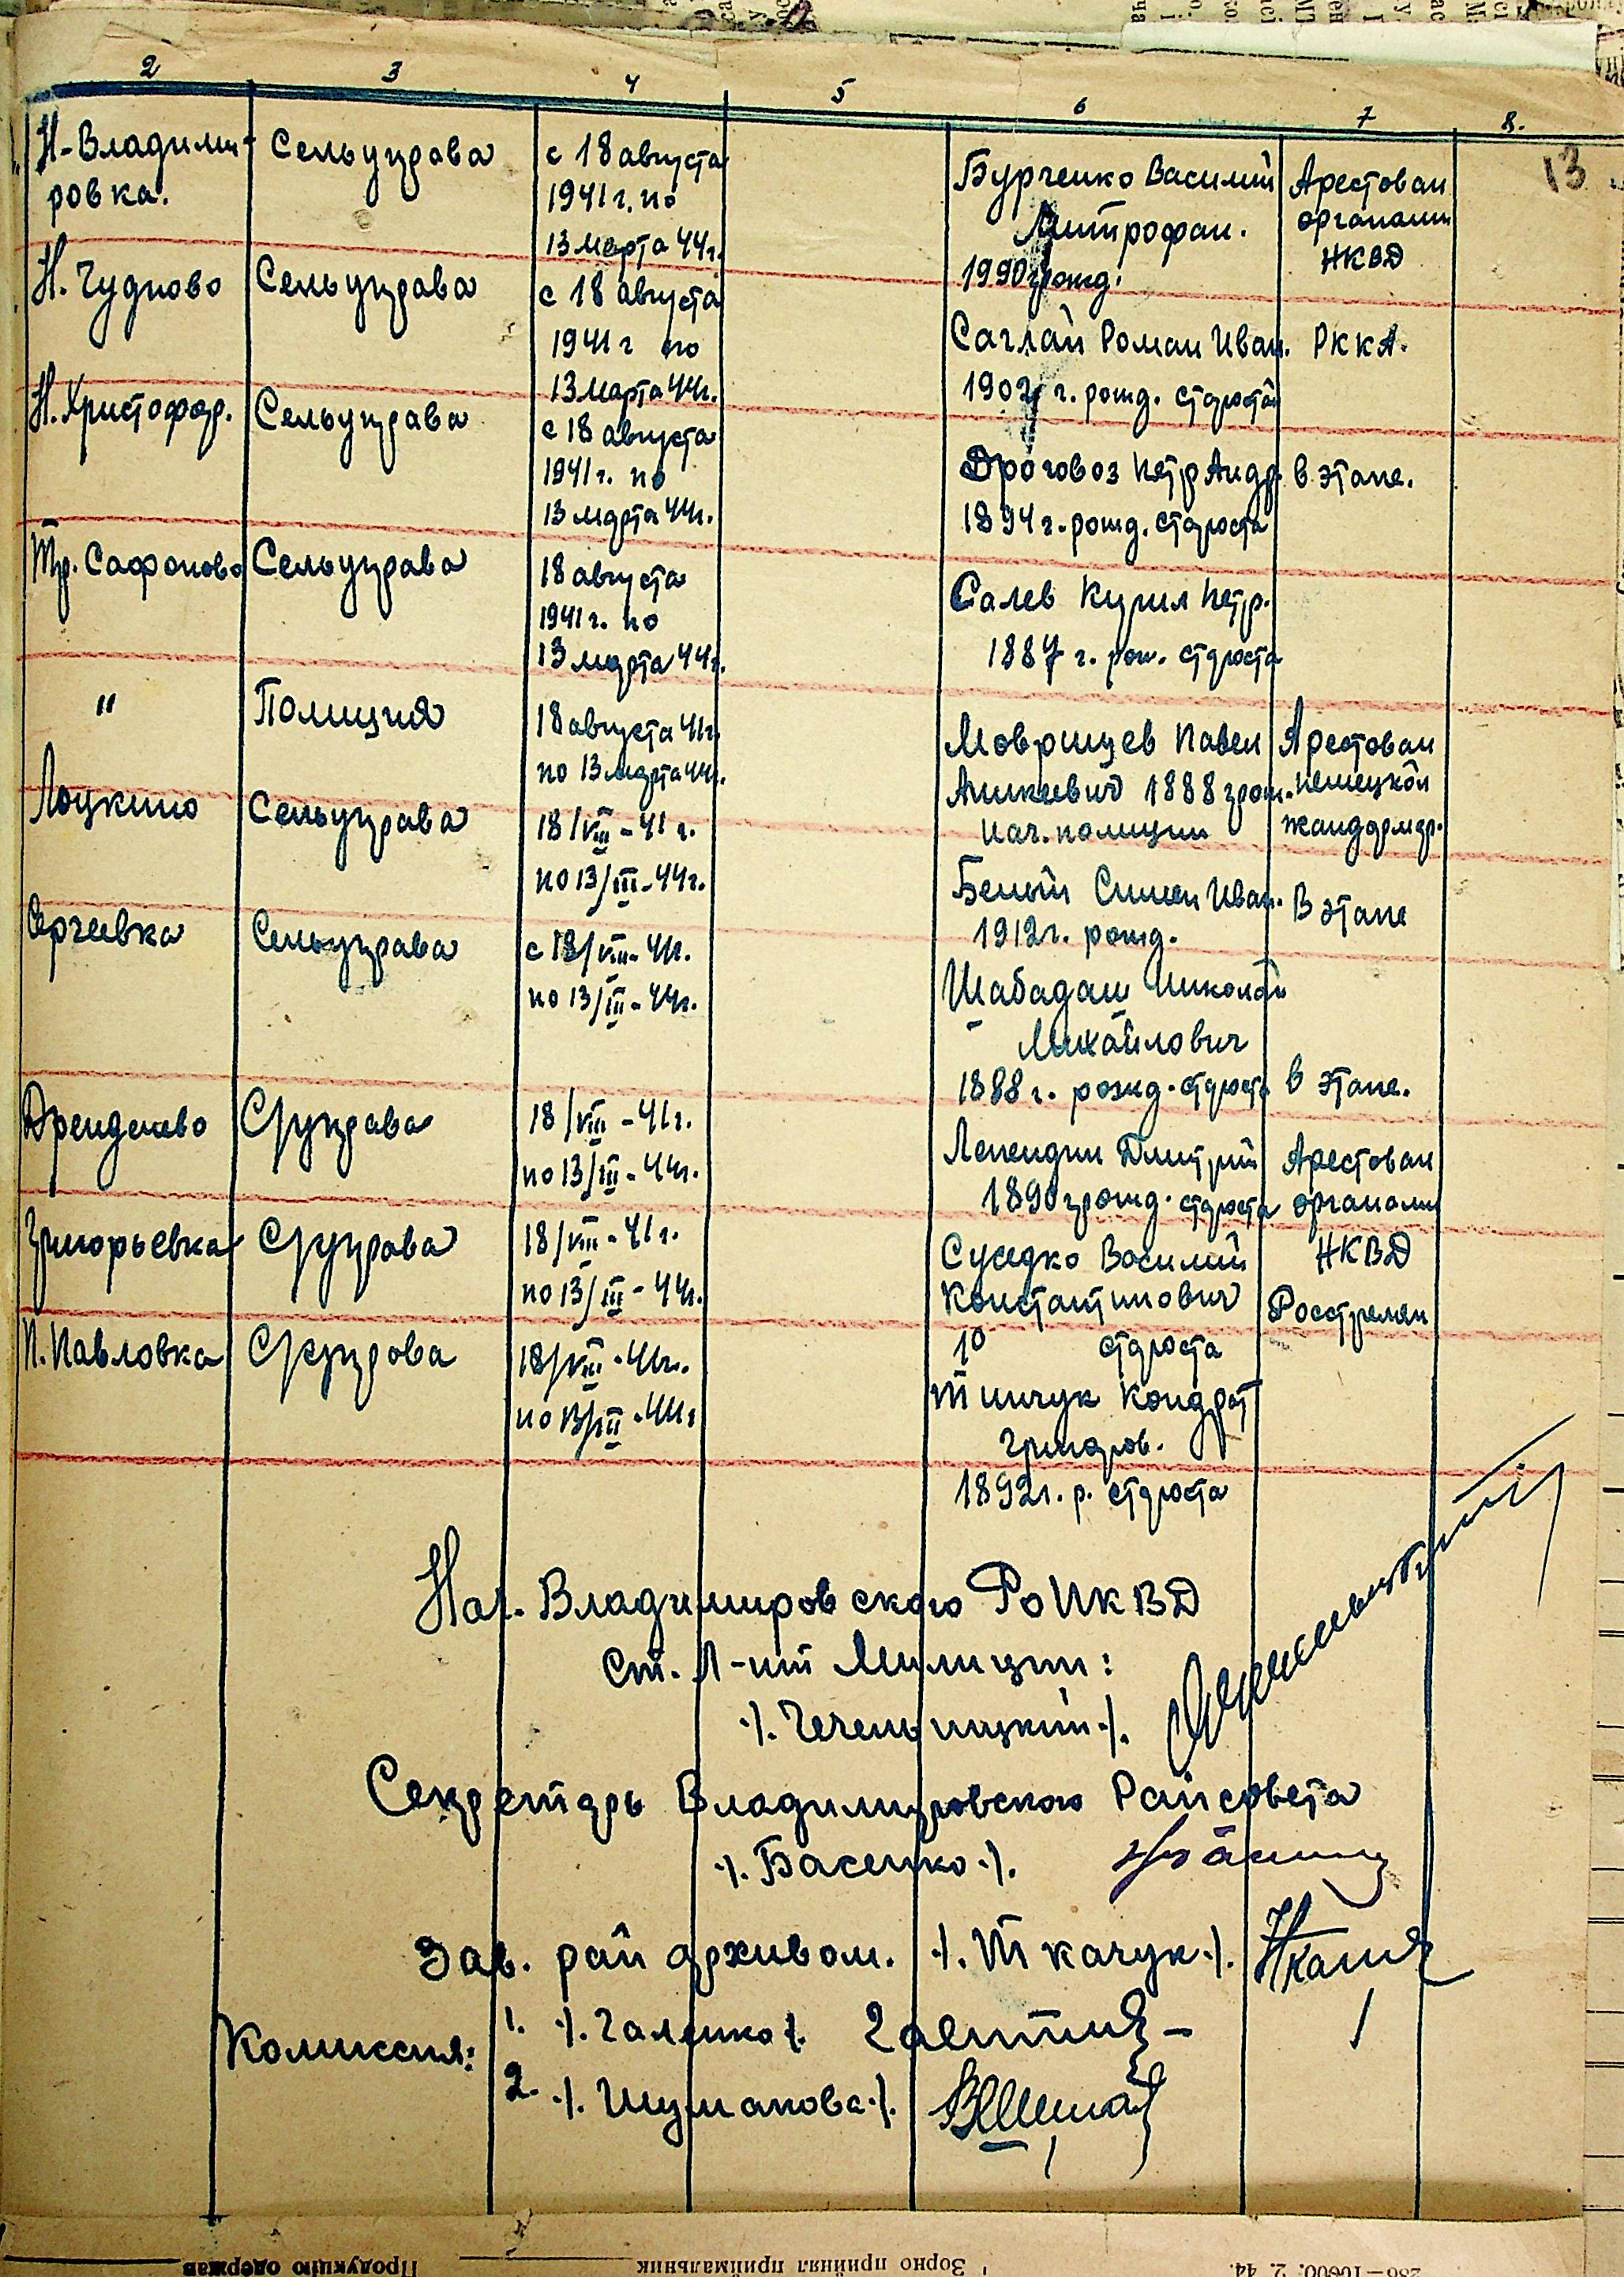 2 3 4 5 6 7 8.
13
Н-Владими- Сельуправа с 18 августа Бурченко Василий Арестован
ровка. 1941 г. по Митрофан. органами
13 марта 44 г. 1990 г рожд. НКВД
Н. Чудново Сельуправа с 18 августа
1941 г по Саглай Роман Иван. РККА.
13 марта 44 г. 1902 г. рожд. староста
Н. Христофор. Сельуправа с 18 августа
1941 г. по Дроговоз Петр Андр. в этапе.
13 марта 44 г. 1894 г. рожд. староста
Тр. Сафоново Сельуправа 18 августа Салев Кирил Петр.
1941 г. по
13 марта 44 г. 1887 г. рож. староста
" Полиция 18 августа 41 г. Павел Арестован
по 13 марта 44 г. 1888 г рож. немецкой
нач. полиции жандармер.
Лоцкино Сельуправа 18/VIII - 41 г.
по 13/III - 44 г. Белый Симен Иван. В этапе
1912 г. рожд.
Сергеевка Сельуправа с 18/VIII - 41 г. Шабадаш Николай
по 13/III - 44 г. Михайлович
1888 г. рожд. староста в этапе.
Сруправа 18/VIII - 41 г. Лепендин Дмитрий Арестован
по 13/III - 44 г. 1890 г рожд. староста органами
НКВД
Григорьевка Сруправа 18/VIII - 41 г. Суседко Василий
по 13/III - 44 г. Константинович Росстрелян
староста
П. Павловка Сруправа 18/VIII - 41 г. Тимчук Кондрат
по 13/III - 44 г
1892 г. р. староста
Нач. Владимировского РоНКВД
Ст. Л-нт Милиции:
·/. Чечельницкий ·/.
Секретарь Владимировского Райсовета
·/. Басенко ·/.
Зав. райархивом. ·/. Ткачук ·/.
Комиссия: 1. ·/. Галенко ·/.
2. ·/. Шуманова ·/.
Продукцію одержав
Зерно прийняв приймальник
286—10000. 2. 44.